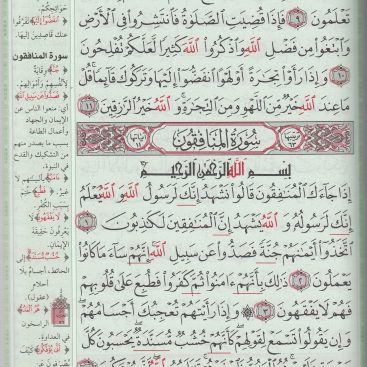 تَعْلَمُونَ ٩ فَإِذَا قُضِيَتِ الصَّلَوٰةُ فَانتَشِرُوا فِي الْأَرْضِ
وَابْتَغُوا مِن فَضْلِ اللَّهِ وَاذْكُرُوا اللَّهَ كَثِيرًا لَّعَلَّكُمْ تُفْلِحُونَ
١٠ وَإِذَا رَأَوْا تِجَٰرَةً أَوْ لَهْوًا انفَضُّوا إِلَيْهَا وَتَرَكُوكَ قَائِمًا قُلْ
مَا عِندَ اللَّهِ خَيْرٌ مِّنَ اللَّهْوِ وَمِنَ التِّجَٰرَةِ وَاللَّهُ خَيْرُ الرَّٰزِقِينَ ١١
سُورَةُ المُنَافِقُونَ
بِسْمِ اللَّهِ الرَّحْمَٰنِ الرَّحِيمِ
إِذَا جَاءَكَ الْمُنَٰفِقُونَ قَالُوا نَشْهَدُ إِنَّكَ لَرَسُولُ اللَّهِ وَاللَّهُ يَعْلَمُ
إِنَّكَ لَرَسُولُهُ وَاللَّهُ يَشْهَدُ إِنَّ الْمُنَٰفِقِينَ لَكَٰذِبُونَ ١
اتَّخَذُوا أَيْمَٰنَهُمْ جُنَّةً فَصَدُّوا عَن سَبِيلِ اللَّهِ إِنَّهُمْ سَاءَ مَا كَانُوا
يَعْمَلُونَ ٢ ذَٰلِكَ بِأَنَّهُمْ ءَامَنُوا ثُمَّ كَفَرُوا فَطُبِعَ عَلَىٰ قُلُوبِهِمْ
فَهُمْ لَا يَفْقَهُونَ ٣ وَإِذَا رَأَيْتَهُمْ تُعْجِبُكَ أَجْسَامُهُمْ
وَإِن يَقُولُوا تَسْمَعْ لِقَوْلِهِمْ كَأَنَّهُمْ خُشُبٌ مُّسَنَّدَةٌ يَحْسَبُونَ كُلَّ
حوائجكم.
عنك قاصدين إليها.
سورة المنافقون
﴿جُنَّةً﴾ وقاية
لأنفسهم وأموالهم.
أي: منعوا الناس عن
الإيمان والجهاد
وأعمال الطاعة
بسبب ما يصدر منهم
من التشكيك والقدح
في النبوة.
بسبب الكفر.
﴿لَا يَفْقَهُونَ﴾ لا
يعرفون حقيقة
الإيمان.
الحائط، أجسام بلا
أحلام
(عقول)
الراسخون
في العداوة.